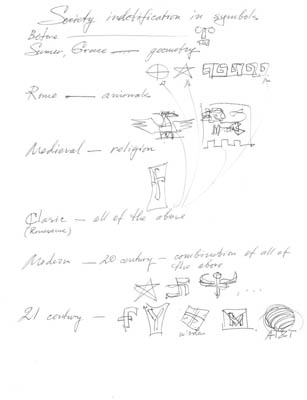 Society indetification in symbols
Before
Sumer, Greece — geometry
Rome — animals
Medieval — religion
Clasic — all of the above
(Renesance)
Modern — 20 century — combination of all of
the above
21 century —
M
AT&T